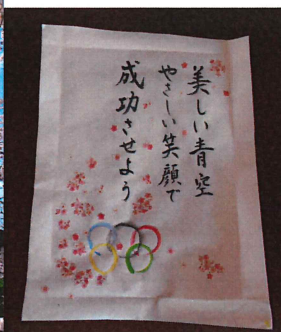 美しい青空
やさしい笑顔で
成功させよう